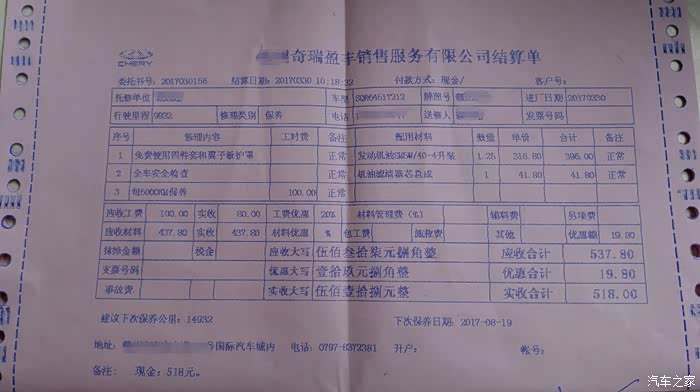 CHERY
奇瑞盈丰销售服务有限公司结算单
委托书号: 2017030156 结算日期: 20170330 10:18:32 付款方式: 现金/ 客户号:
托修单位 车型 牌照号 进厂日期 20170330
行驶里程 9932 修理类别 保养 电话 送修人 发票号码
序号 修理内容 工时费 备注 配用材料 数量 单价 合计 备注
1 免费使用四件套和翼子板护罩 正常 发动机油 4升装 1.25 316.80 396.00 正常
2 全车安全检查 正常 机油滤清器芯总成 1 41.80 41.80 正常
3 每5000KM保养 100.00 正常
应收工费 100.00 实收 80.00 工费优惠 20% 材料管理费(%) 辅料费 另项费
应收材料 437.80 实收 437.80 材料优惠 % 包工费 施救费 其他 优惠额 19.80
抹掉金额 税金 应收大写 伍佰叁拾柒元捌角整 应收合计 537.80
支票号码 优惠大写 壹拾玖元捌角整 优惠合计 19.80
事故费 实收大写 伍佰壹拾捌元整 实收合计 518.00
建议下次保养公里: 14932 下次保养日期: 2017-08-19
地址: 号国际汽车城内 电话: 0797-8372381 开户: 帐号:
备注: 现金: 518元。
汽车之家